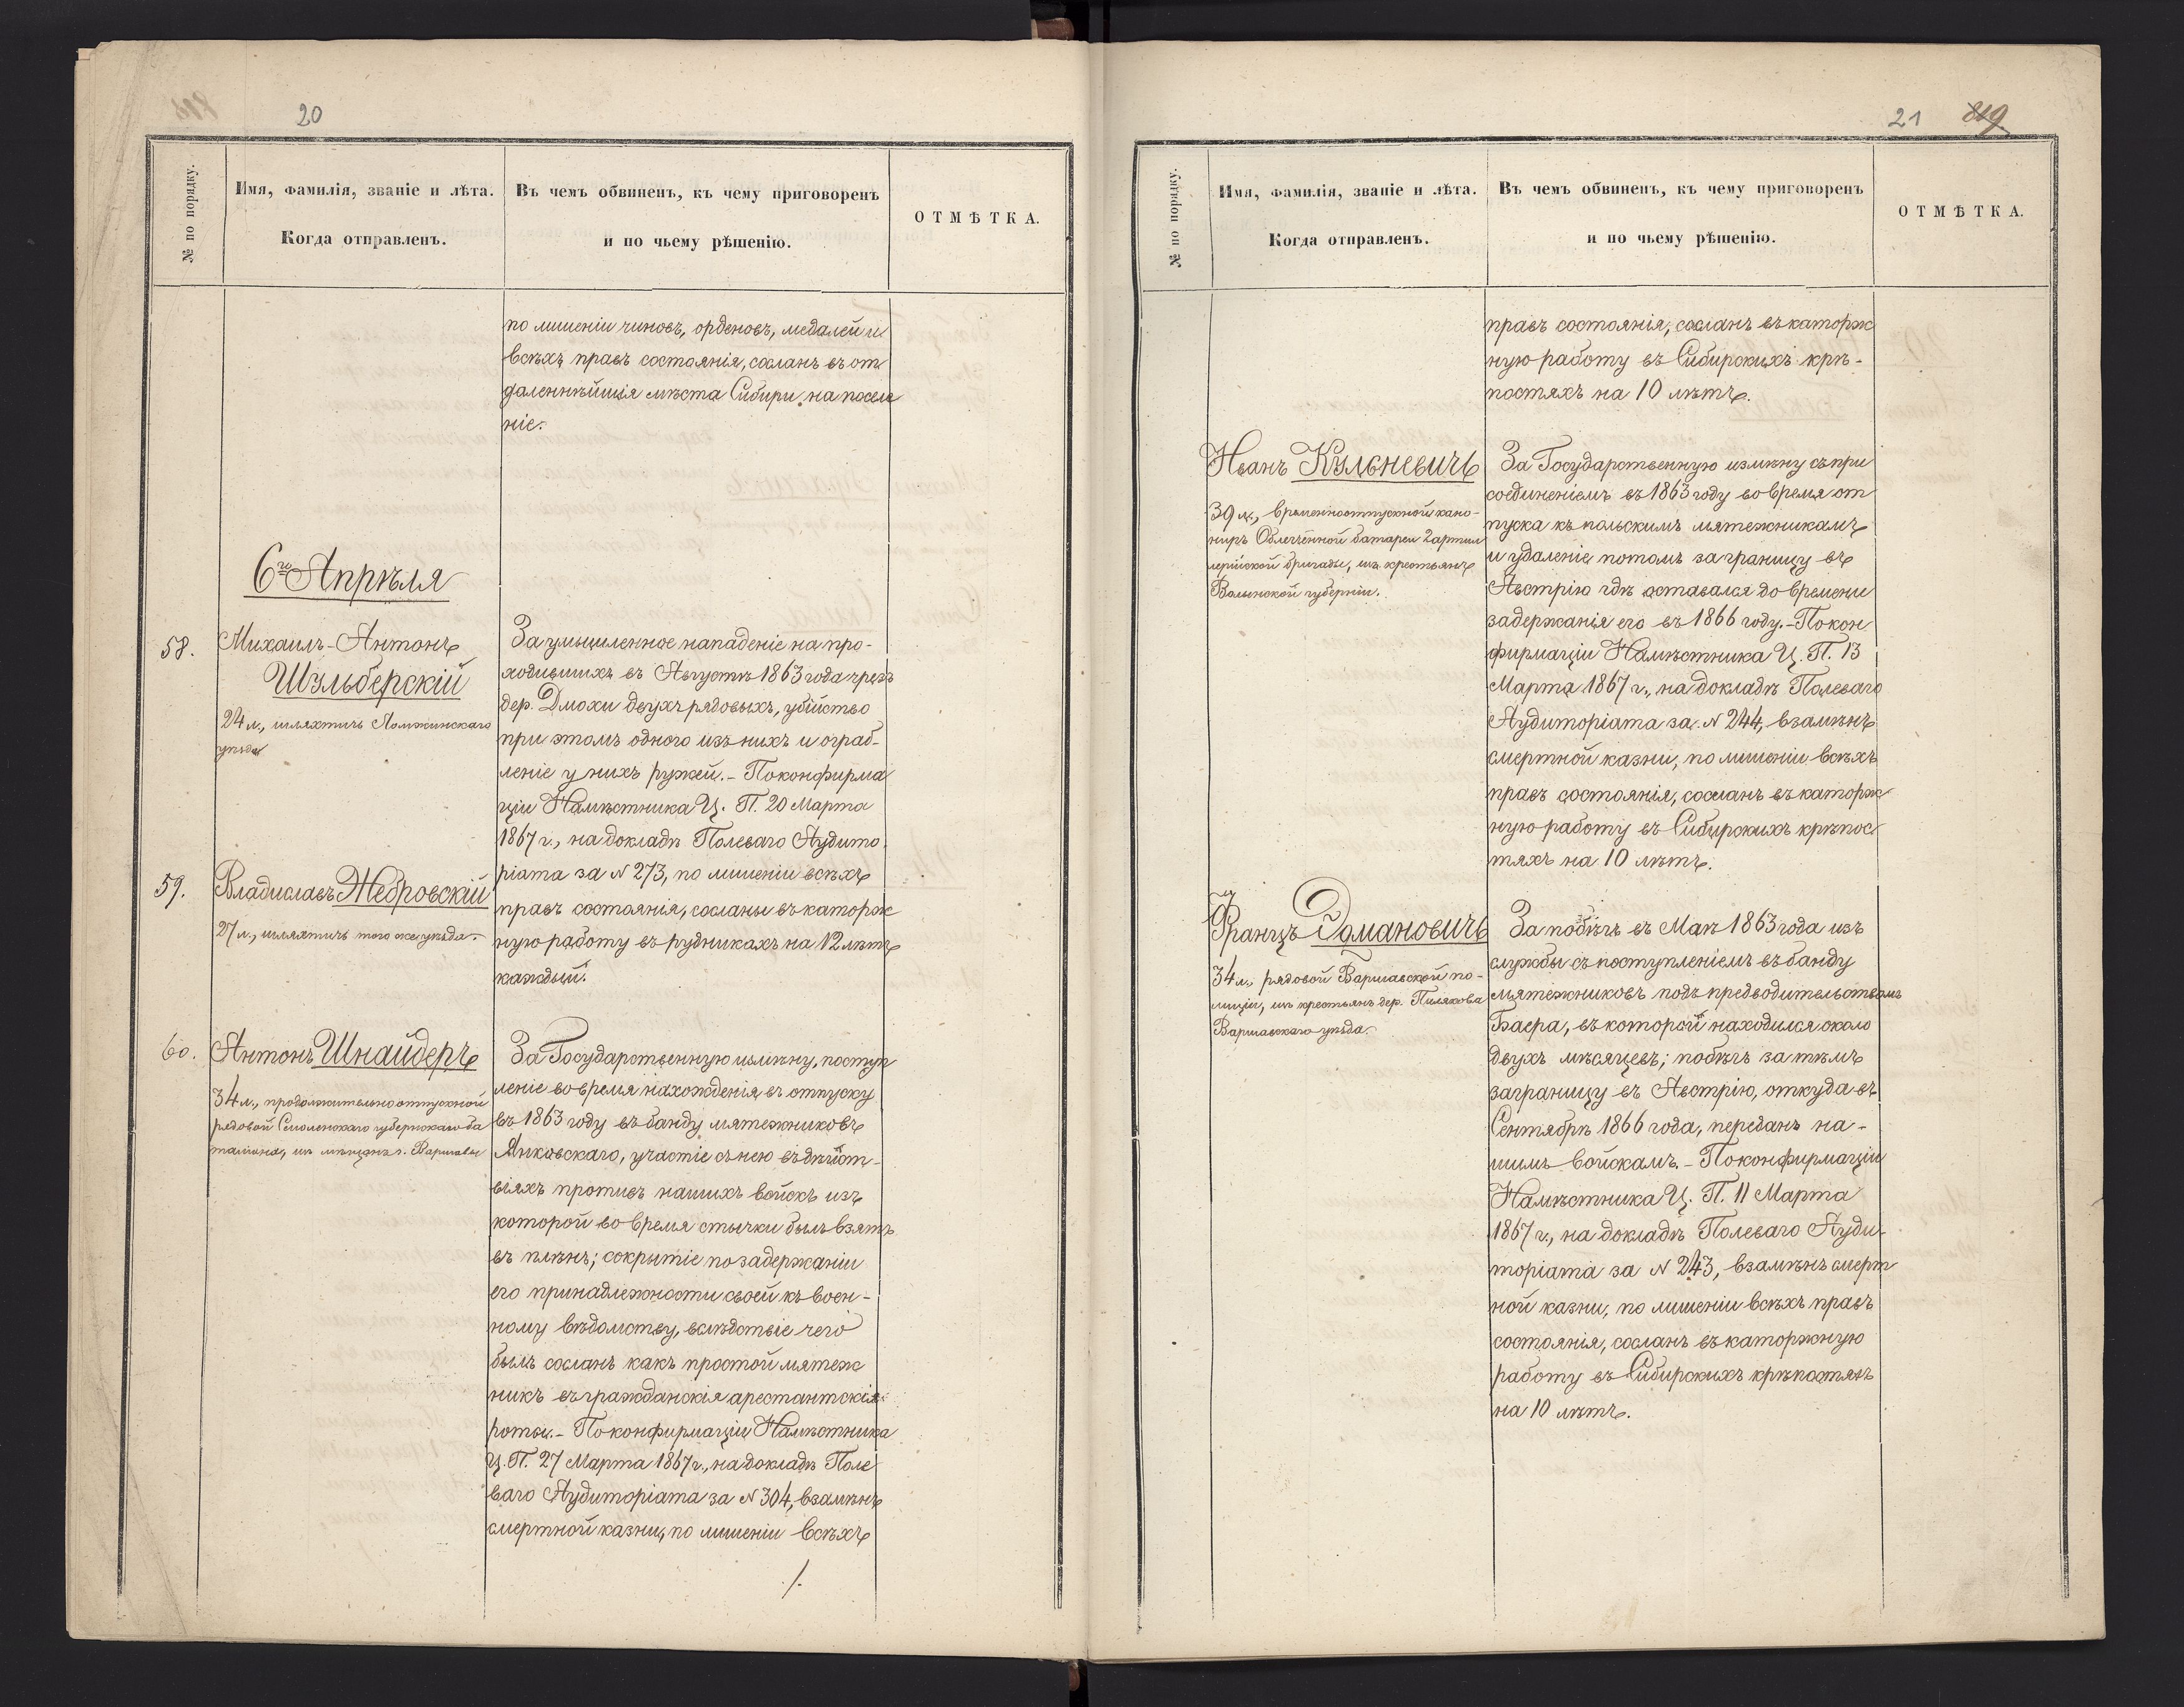 20
№ по порядку.
Имя, фамилія, званіе и лѣта.
Когда отправленъ.
Въ чемъ обвиненъ, къ чему приговоренъ
и по чьему рѣшенію.
ОТМѢТКА.
по лишеніи чиновъ, орденовъ, медалей и
всѣхъ правъ состоянія, сосланъ въ от
даленнѣйшія мѣста Сибири на поселе
ніе.
6го Апрѣля
58.
Михаилъ-Антонъ
Шэльберскій
24 л., шляхтичъ Ломжинскаго
уѣзда
За умышленное нападеніе на про-
ходившихъ въ Августѣ 1863 года чрезъ
дер. Дмохи двухъ рядовыхъ, убійство
при этомъ одного изъ нихъ и ограб-
леніе у нихъ ружей.- По конфирма
ціи Намѣстника Ц. П. 20 Марта
1867 г., на докладѣ Полеваго Аудито
ріата за N 273, по лишеніи всѣхъ
правъ состоянія, сосланы въ каторж
ную работу въ рудникахъ на 12 лѣтъ
каждый.
59.
Владиславъ Жебровскій
27 л., шляхтичъ того же уѣзда.
60.
Антонъ Шнайдеръ
34 л., продолжительноотпускной
рядовой Смоленскаго губернскаго ба
таліона, изъ мѣщанъ г. Варшавы
За Государственную измѣну, поступ
леніе во время нахожденія въ отпуску
въ 1863 году въ банду мятежниковъ
Янковскаго, участіе съ нею въ дѣйст-
віяхъ противъ нашихъ войскъ изъ
которой во время стычки былъ взятъ
въ плѣнъ; сокрытіе по задержаніи
его принадлежности своей къ воен-
ному вѣдомству, вслѣдствіе чего
былъ сосланъ какъ простой мятеж
никъ въ гражданскія арестантскія
роты.- По конфирмаціи Намѣстника
Ц. П. 27 Марта 1867 г., на докладѣ Поле
ваго Аудиторіата за N 304, взамѣнъ
смертной казни, по лишеніи всѣхъ
/.
21 819
№ по порядку.
Имя, фамилія, званіе и лѣта.
Когда отправленъ.
Въ чемъ обвиненъ, къ чему приговоренъ
и по чьему рѣшенію.
ОТМѢТКА.
правъ состоянія, сосланъ въ каторж
ную работу въ Сибирскихъ крѣ-
постяхъ на 10 лѣтъ.
Иванъ Кульневичъ
39 л., временноотпускной кано-
ниръ Облегченной батареи 2 артил
лерійской бригады, изъ крестьянъ
Волынской губерніи.
За Государственную измѣну съ при
соединеніемъ въ 1863 году во время от
пуска къ польскимъ мятежникамъ
и удаленіе потомъ заграницу въ
Австрію гдѣ оставался до времени
задержанія его въ 1866 году.- По кон
фирмаціи Намѣстника Ц. П. 13
Марта 1867 г., на докладѣ Полеваго
Аудиторіата за N 244, взамѣнъ
смертной казни, по лишеніи всѣхъ
правъ состоянія, сосланъ въ каторж
ную работу въ Сибирскихъ крѣпос
тяхъ на 10 лѣтъ.
Францъ Домановичъ
34 л., рядовой Варшавской по-
лиціи, изъ крестьянъ дер. Пилякова
Варшавскаго уѣзда.
За побѣгъ въ Маѣ 1863 года изъ
службы съ поступленіемъ въ банду
мятежниковъ подъ предводительствомъ
Баера, въ которой находился около
двухъ мѣсяцевъ; побѣгъ за тѣмъ
заграницу въ Австрію, откуда въ
Сентябрѣ 1866 года, переданъ на-
шимъ войскамъ.- По конфирмаціи
Намѣстника Ц. П. 11 Марта
1867 г., на докладѣ Полеваго Ауди-
торіата за N 243, взамѣнъ смерт
ной казни, по лишеніи всѣхъ правъ
состоянія, сосланъ въ каторжную
работу въ Сибирскихъ крѣпостяхъ
на 10 лѣтъ.